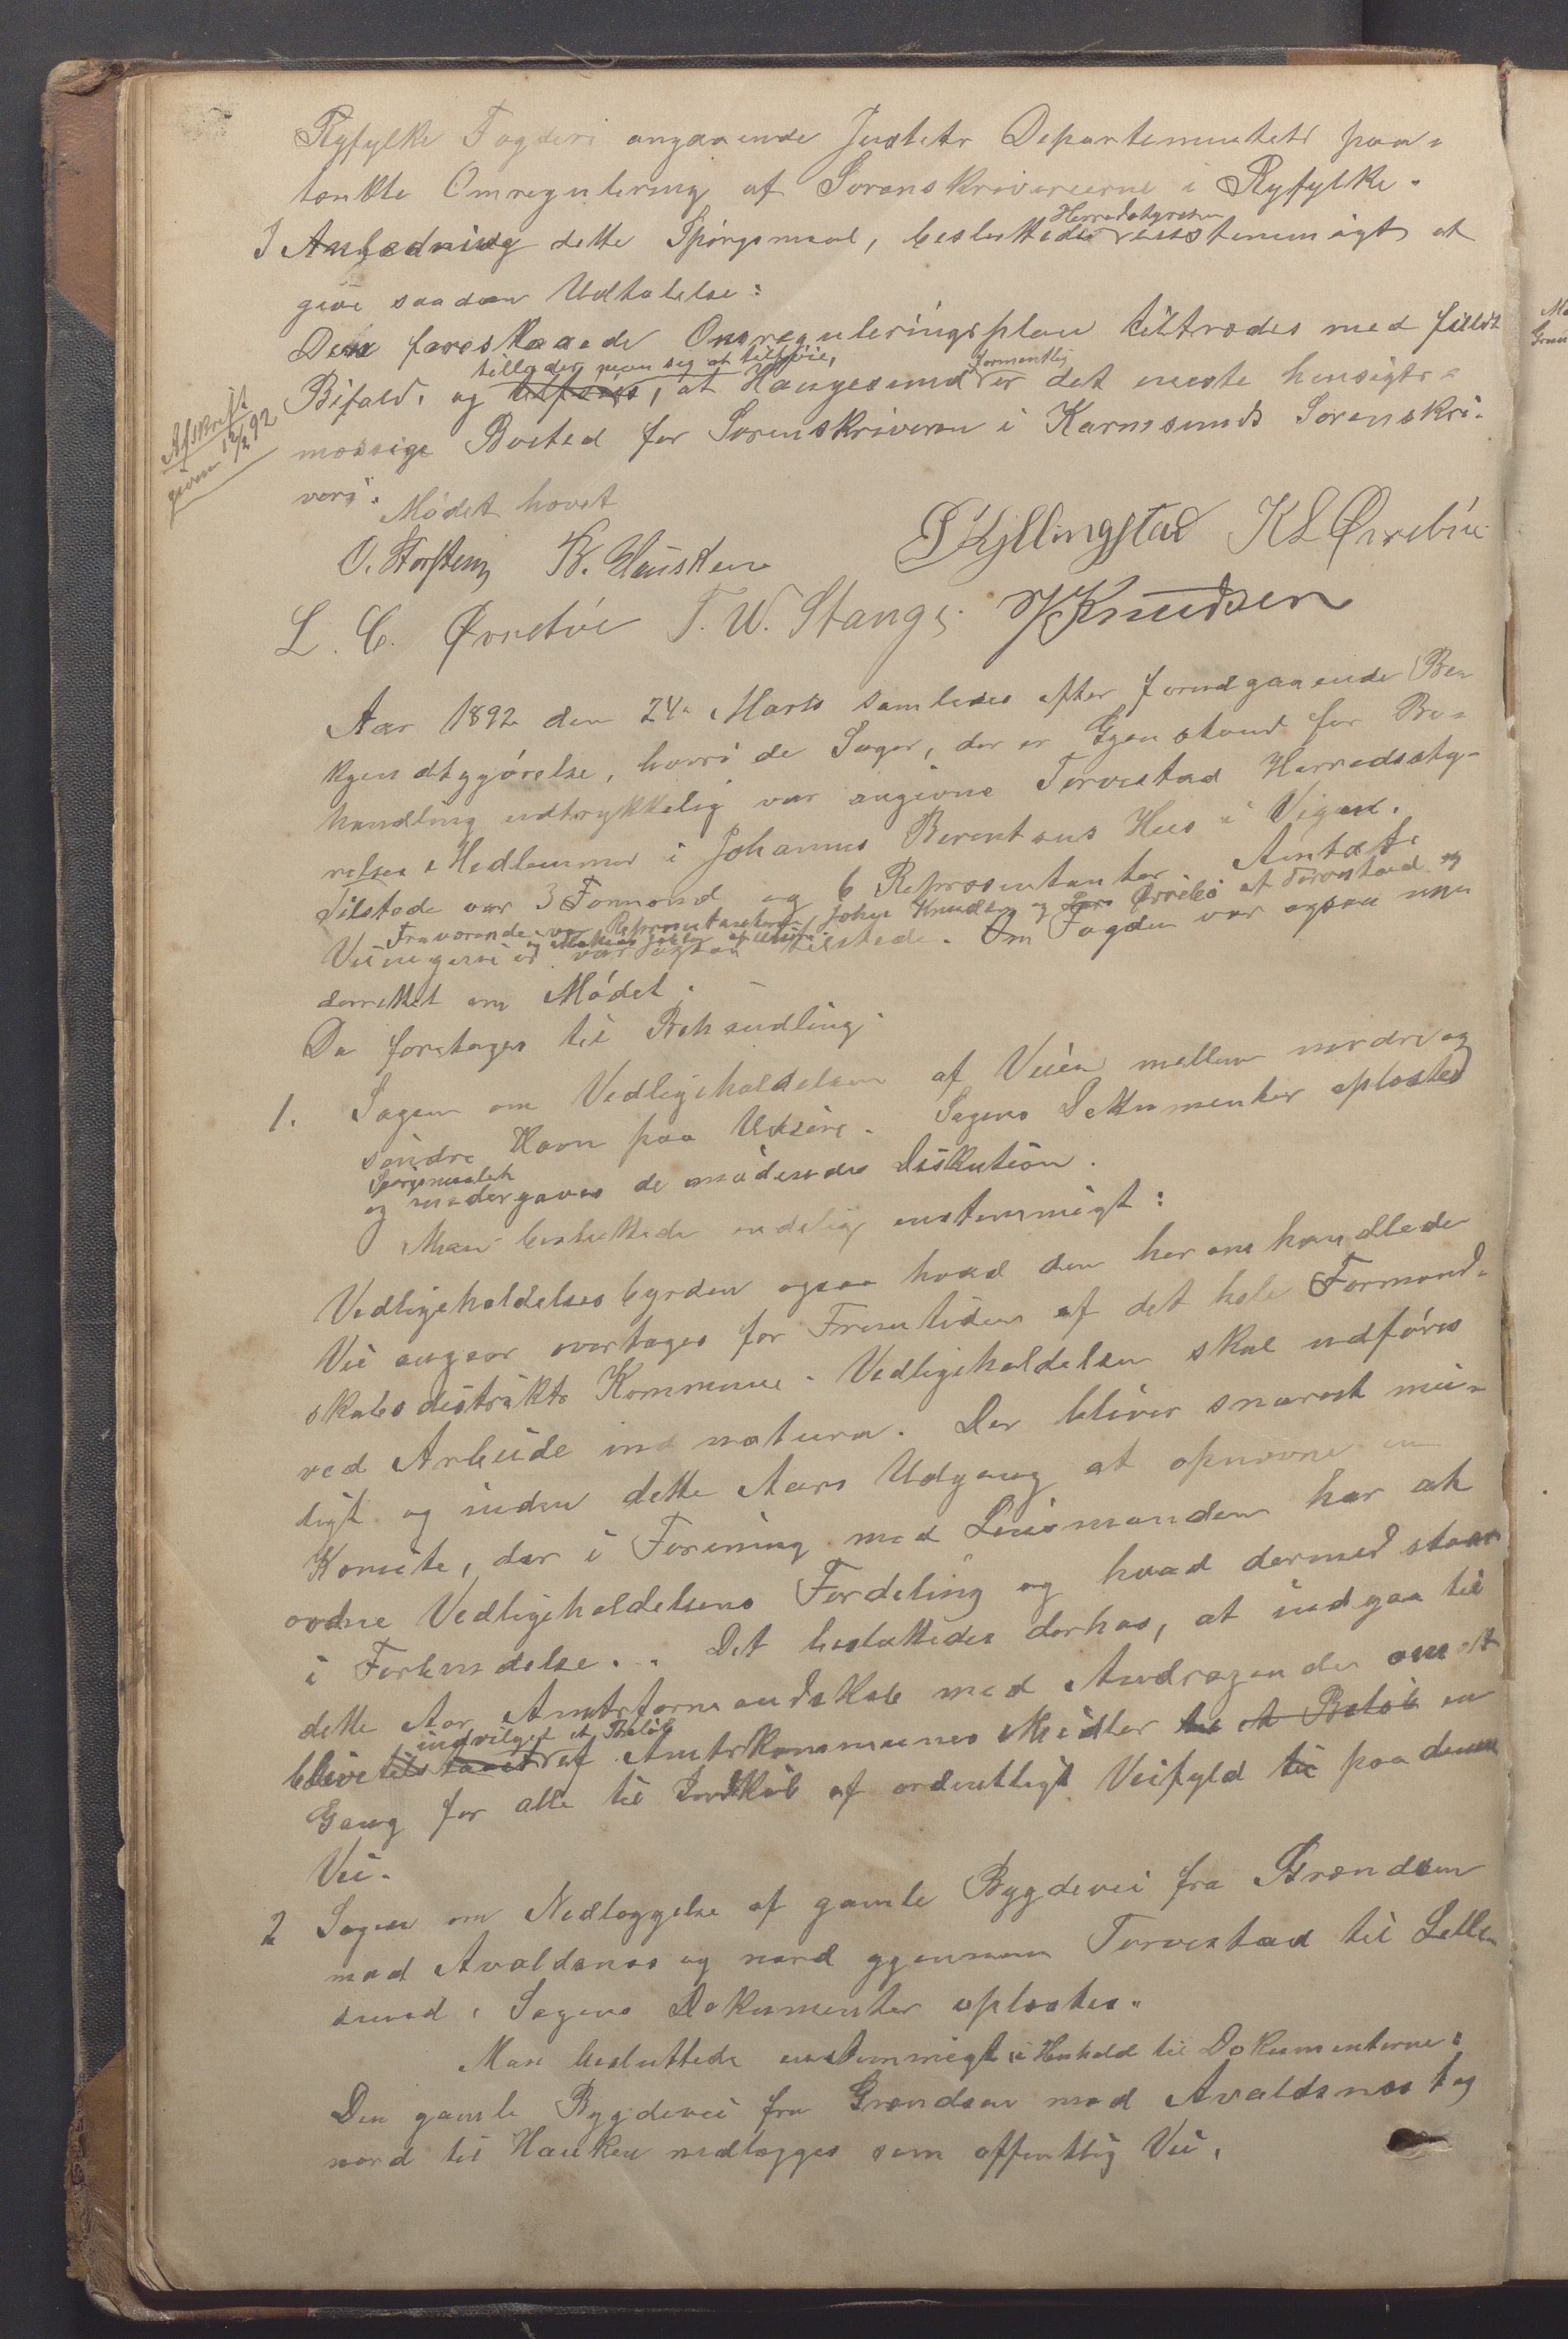 Ryfylke Fogderi angaaende Justets Departementets paa-
tænkte Omregulering af Sorenskriverierne i Ryfylke.
I Anledning dette Spörgsmaal, besluttede Herredsstyrelsen eensstemmigt at
give saadan Udtalelse:
Den foreslaaede Omreguleringsplan tiltrædes med fuldt
Bifald, og tillader man sig at tilföie, at Haugesund formentlig er det eneste hensigts-
mæssige Bosted for Sorenskriveren i Karmsunds Sorenskri-
veri.
Afskrift
given 12/2 92
Mödet hævet
O. Storstein B. Hausken S Kyllingstad K L Øvrebö
L. C. Øvrebö T. W. Stange. J Knudsen
Aar 1892 den 24. Marts samledes efter forudgaaende Be-
kjendtgjörelse, hvori de Sager, der er Gjenstand for Be-
handling udtrykkelig var angivne Torvestad Herredssty-
relses Medlemmer i Johannes Berentsens Hus i Vigen.
Tilstede var 3 Formænd og 6 Repræsentanter. Amtets
Fraværende var Repræsentanterne John Knudsen og Lars Øvrebö af Torvestad og
og Mathias Jakobs. af Utsire.
Veiingeniör var ogsaa tilstede. Om Fogden var ogsaa un-
derrettet om Mödet.
Da foretages til Behandling:
1. Sagen om Vedligeholdelsen af Veien mellem nordre og
söndre Havn paa Udsire. Sagens Dokumenter oplæstes
og Spörgsmaalet undergaves de mödendes Diskution.
Man besluttede endelig enstemmigt:
Vedligeholdelsesbyrden ogsaa hvad den her omhandlede
Vei angaar overtages for Fremtiden af det hele Formand-
skabsdistrikts Kommune. Vedligeholdelsen skal udföres
ved Arbeide in natura. Der bliver snarest mu-
ligt og inden dette Aars Udgang at opnævne en
Komite, der i Forening med Lensmanden har at
ordne Vedligeholdelsens Fordeling og hvad dermed staar
i Forbindelse. Det besluttedes derhos, at indgaa til
dette Aars Amtsformandskab med Andragende om at
blive tilstaaet indvilget et Belöb af Amtskommunes Midler til et Belöb en
Gang for alle til Indkjöb af ordentligt Veifyld til paa denne
Vei.
2 Sagen om Nedlæggelse af gamle Bygdevei fra Grændsen
mod Avaldsnæs og nord gjennem Torvestad til Lille-
sund. Sagens Dokumenter oplæstes.
Man besluttede enstemmigt i Henhold til Dokumenterne:
Den gamle Bygdevei fra Grændsen mod Avaldsnæs og
nord til Hauken nedlægges som offentlig Vei.